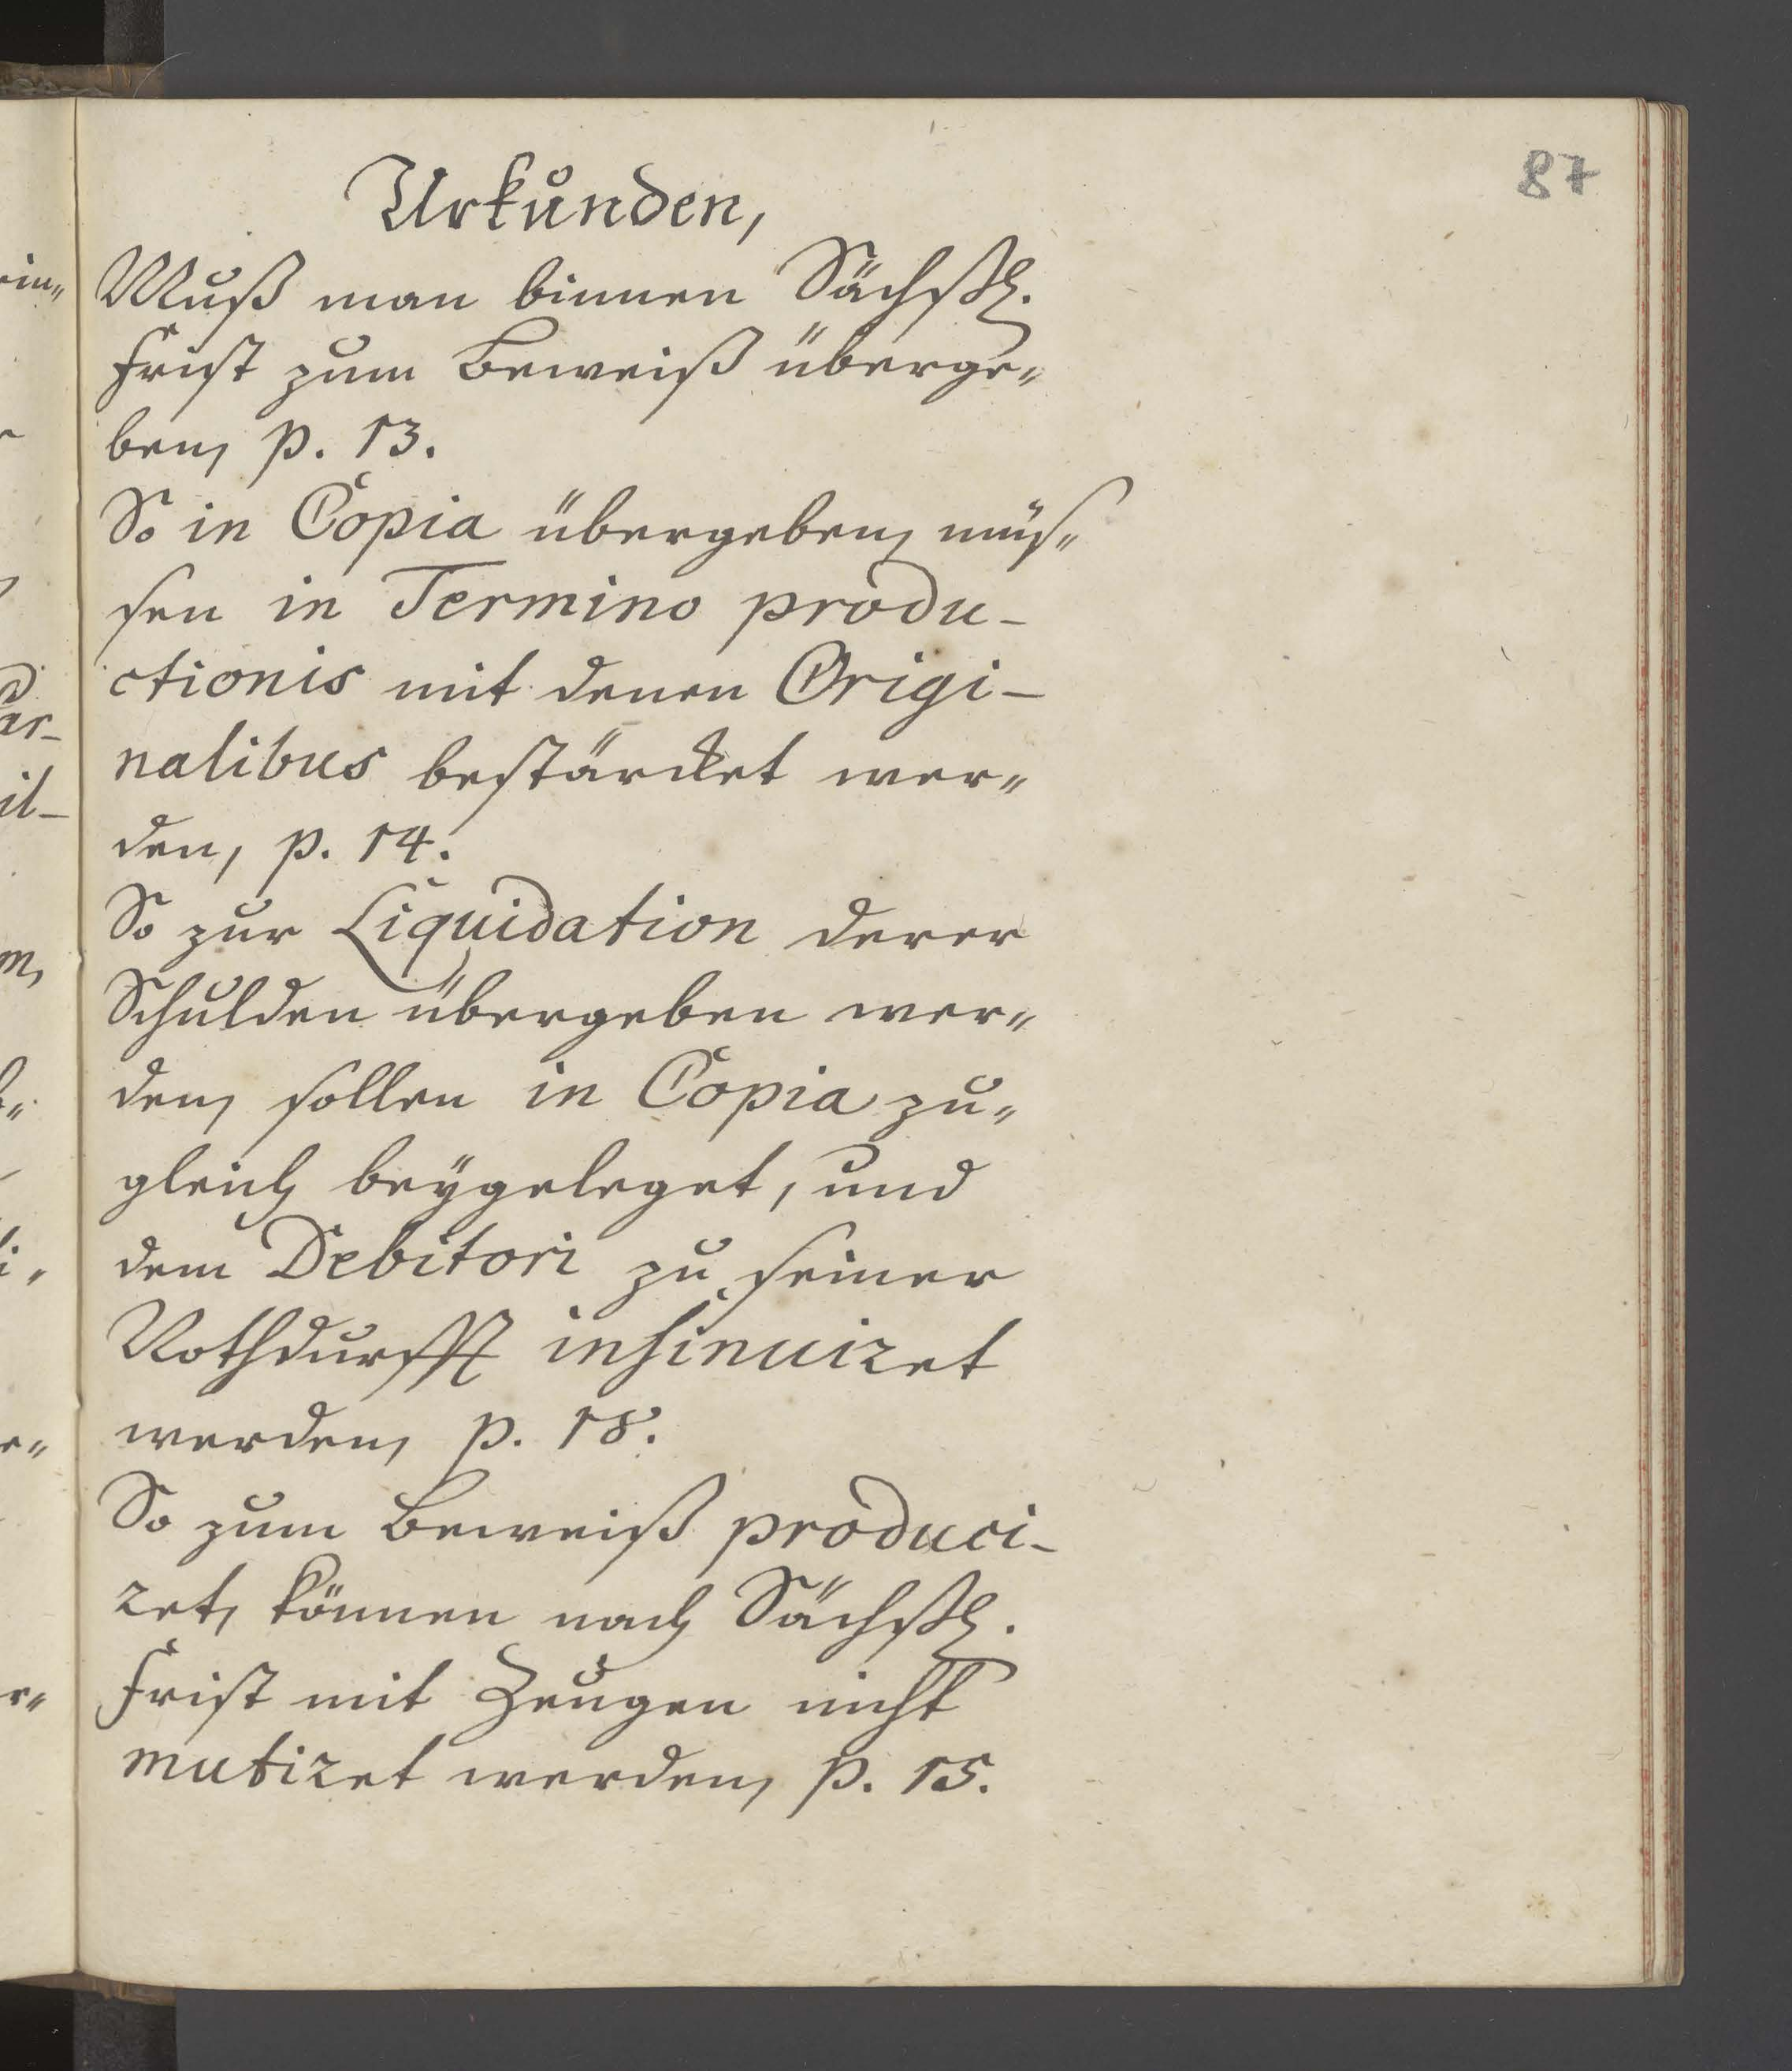 87
Urkunden,
Muß man binnen Sächßl.
Frist zum Beweiß überge-
ben, p. 13.
So in Copia übergeben, müs-
sen in Termino produ-
ctionis mit denen Origi-
nalibus bestärcket wer-
den, p. 14.
So zur Liquidation derer
Schulden übergeben wer-
den, sollen in Copia zu-
gleich beygeleget, und
dem Debitori zu seiner
Nothdurfft insinuiret
werden, p. 18.
So zum Beweiß produci-
ret, können nach Sächßl.
Frist mit Zeugen nicht
mutiret werden, p. 15.